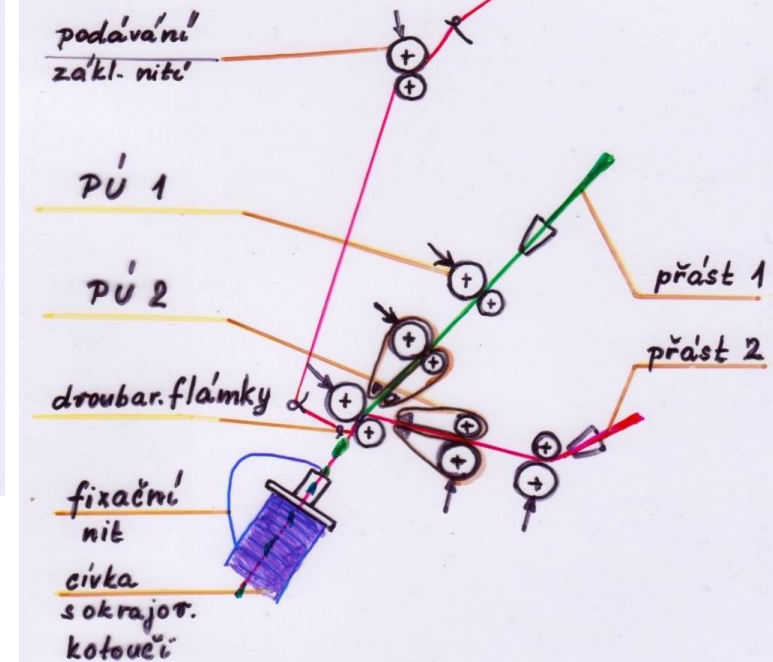 podávání
zákl. nití
PÚ 1
PÚ 2
droubar. flámky
fixační
nit
cívka
s okrajov.
kotouči
přást 1
přást 2